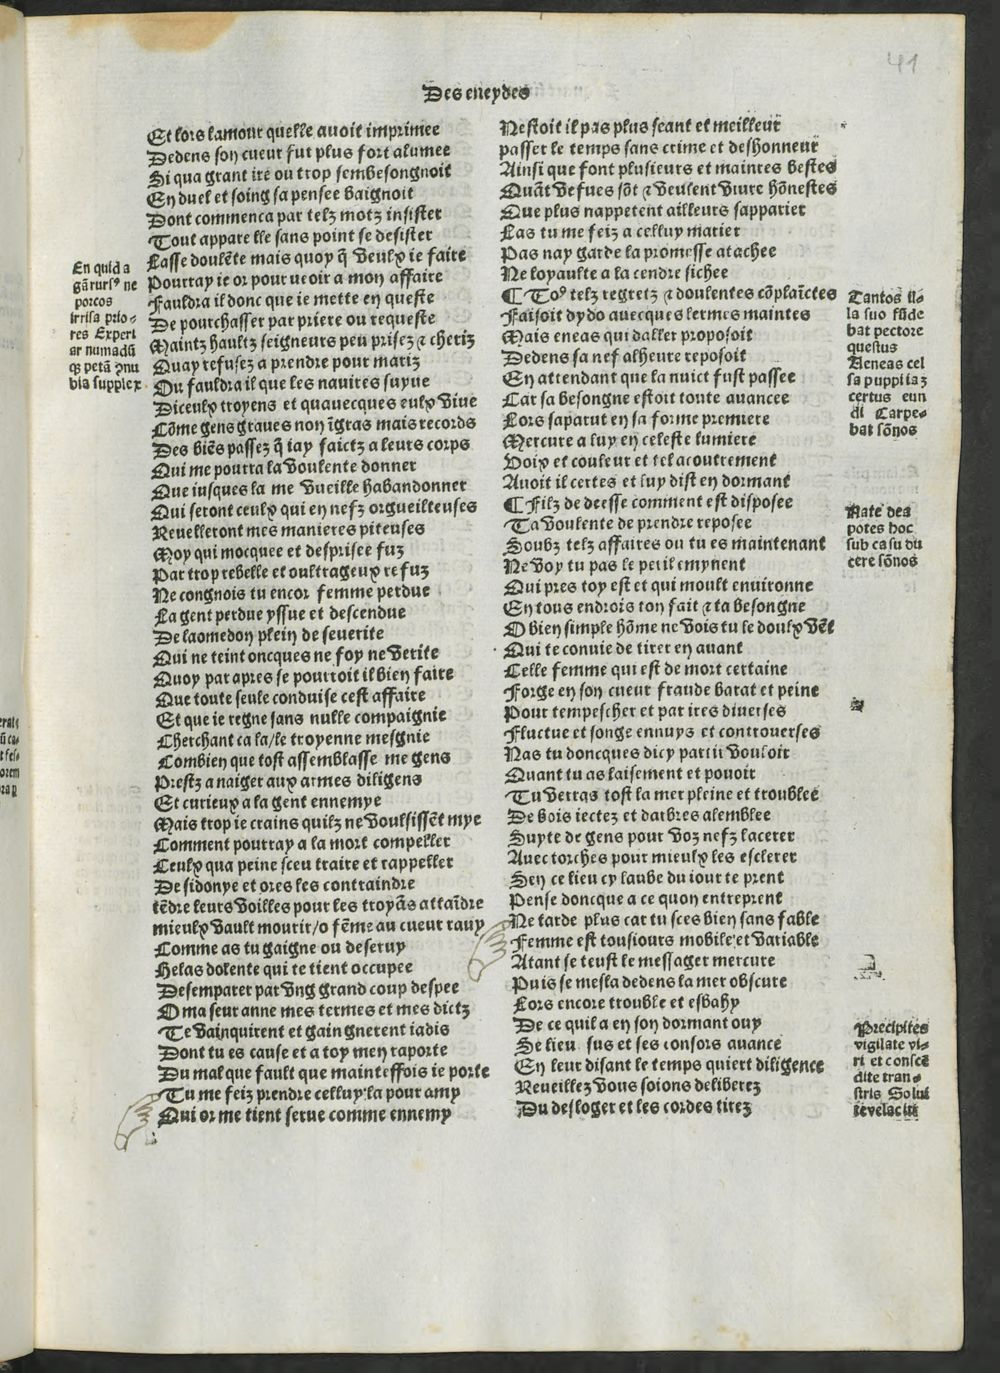 41
Des eneydes
Et lors lamour quelle auoit imprimee
Dedens son cueur fut plus fort alumee
Si qua grant ire ou trop sembesongnoit
En duel et soing sa pensee baignoit
Dont commenca par telz motz insister
Tout appare lle sans point se desister
Lasse doulẽte mais quoy q̃ veulx ie faire
Pourray ie or pour ueoir a mon affaire
Fauldra il donc que ie mette en queste
De pourchasser par priere ou requeste
Maintz haultz seigneurs peu prisez ⁊ cheriz
Quay refusez a prendre pour mariz
Ou fauldra il que les nauires suyue
Diceulx troyens et quauecques eulx viue
Cõme gens graues non ĩgras mais records
Des biẽs passez q̃ iay faictz a leurs corps
Qui me pourra la voulente donner
Que iusques la me vueille habandonner
Qui seront ceulx qui en nefz orgueilleuses
Reuelleront mes manieres piteuses
Moy qui mocquee et desprisee fuz
Par trop rebelle et oultrageux refuz
Ne congnois tu encor femme perdue
La gent perdue yssue et descendue
De laomedon plein de seuerite
Qui ne teint oncques ne foy ne verite
Quoy par apres se pourroit il bien faire
Que toute seule conduise cest affaire
Et que ie regne sans nulle compaignie
Cherchant ca la/le troyenne mesgnie
Combien que tost assemblasse me gens
Prestz a naiger aux armes diligens
Et curieux a la gent ennemye
Mais trop ie crains quilz ne voulsissẽt mye
Comment pourray a la mort compeller
Ceulx qua peine sceu traire et rappeller
De sidonye et ores les contraindre
tẽdre leurs voilles pour les troyãs attaĩdre
mieulx vault mourir/o fẽme au cueur rauy
Comme as tu gaigne ou deseruy
Helas dolente qui te tient occupee
Desemparer par vng grand coup despee
O ma seur anne mes termes et mes dictz
Te vainquirent et gaingnerent iadis
Dont tu es cause et a toy men raporte
Du mal que fault que mainteffois ie porte
Tu me feiz prendre celluy la pour amy
Qui or me tient serue comme ennemy
En quid a
gã rursꝰ ne
porcos
irrisa prio-
res Experi
ar numadũ
qʒ petã ꝯnu
bia supplex
Nestoit il pas plus seant et meilleur
passer le temps sans crime et deshonneur
Ainsi que font plusieurs et maintes bestes
Quãt vefues sõt ⁊ veulent viure hõnestes
Que plus nappetent ailleurs sapparier
Las tu me feiz a celluy marier
Pas nay garde la promesse atachee
Ne loyaulte a la cendre sichee
¶ Toꝰ telz regretz ⁊ doulentes cõplaĩctes
Faisoit dydo auecques lermes maintes
Mais eneas qui daller proposoit
Dedens sa nef alheure reposoit
En attendant que la nuict fust passee
Car sa besongne estoit toute auancee
Lors saparut en sa forme premiere
Mercure a luy en celeste lumiere
Voix et couleur et tel acoutrement
Auoit il certes et luy dist en dormant
¶ Filz de deesse comment est disposee
Ta voulente de prendre reposee
Soubz telz affaires ou tu es maintenant
Ne voy tu pas le peril emynent
Qui pres toy est et qui moult enuironne
En tous endrois ton fait ⁊ ta besongne
O bien simple hõme ne vois tu le doulx vẽt
Qui te conuie de tirer en auant
Celle femme qui est de mort certaine
Forge en son cueur fraude barat et peine
Pour tempescher et par ires diuerses
Fluctue et songe ennuys et controuerses
Nas tu doncques dicy partir vouloir
Quant tu as laisement et pouoir
Tu verras tost la mer pleine et troublee
De bois iectez et darbres alemblee
Suyte de gens pour voz nefz lacerer
Auec torches pour mieulx les esclerer
Sen ce lieu cy laube du iour te prent
Pense doncque a ce quon entreprent
Ne tarde plus car tu sces bien sans fable
Femme est tousiours mobile et variable
Atant se teust le messager mercure
Puis se mesla dedens la mer obscure
Lors encore trouble et esbahy
De ce quil a en son dormant ouy
Se lieu sus et ses consors auance
En leur disant le temps quiert diligence
Reueillez vous soions deliberez
Du desloger et les cordes tirez
Tantos il-
la suo fũde
bat pectore
questus
Aeneas cel
sa puppi iaʒ
certus eun
di Carpe-
bat sõnos
Nate dea
potes hoc
sub casu du
cere sõnos
Precipites
vigilate vi-
ri et conscẽ
dite tran-
stris Solui
te vela citi